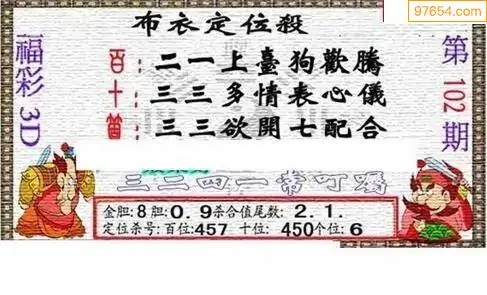 97654.com
布衣定位殺
福彩3D
第102期
百:二一上臺狗歡騰
十:三三多情表心儀
個:三三欲開七配合
三二四一常叮嚀
金胆:8胆:0.9杀合值尾数:2.1.
定位杀号:百位:457 十位:450个位:6